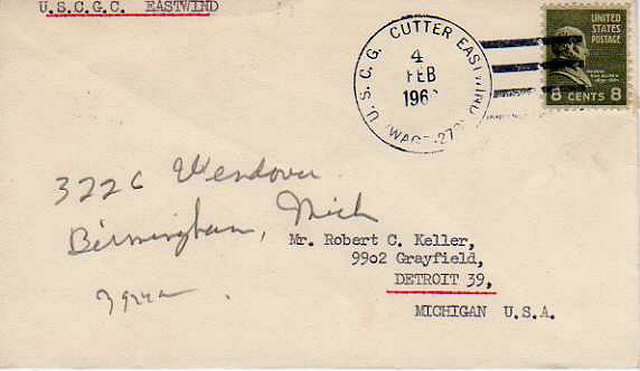 U.S.C.G.C. EASTWIND
U.S.C.G. CUTTER EASTWIND
4
FEB
196
UNITED
STATES
POSTAGE
8 CENTS 8
3226 Wendover
Birmingham, Mich
Mr. Robert C. Keller,
9902 Grayfield,
DETROIT 39,
MICHIGAN U.S.A.